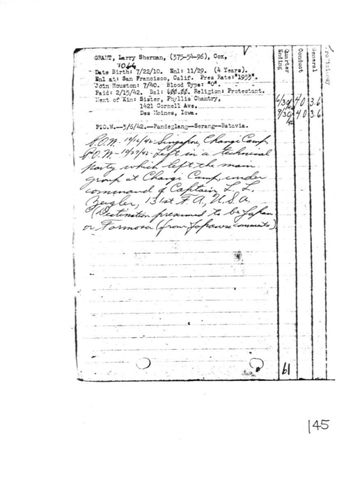 GRANT, Larry Sherman, (375-54-96), Cox,
Date Birth: 7/22/10. Enl: 11/29. (4 Years).
Enl at: San Francisco, Calif. Pres Rate: "1933".
Join Houston: 7/40. Blood Type: "O".
Paid: 2/15/42. Bal: Religion: Protestant.
Next of Kin: Sister, Phyllis Chantry,
1421 Cornell Ave.
Des Moines, Iowa.
P.O.W.--3/6/42.--Pandeglang--Serang--Batavia.
P.O.W. Singapore, Changi Camp
P.O.W. Left in a technical
party which left the main
group at Changi Camp, under
command of Captain L. L.
Zeigler, 131st F. A., U.S.A.
(Destination presumed to be Japan
or Formosa (from Japanese comments)
Quarter Ending
Conduct
General
4.0 3.6
4.0 3.6
61
145